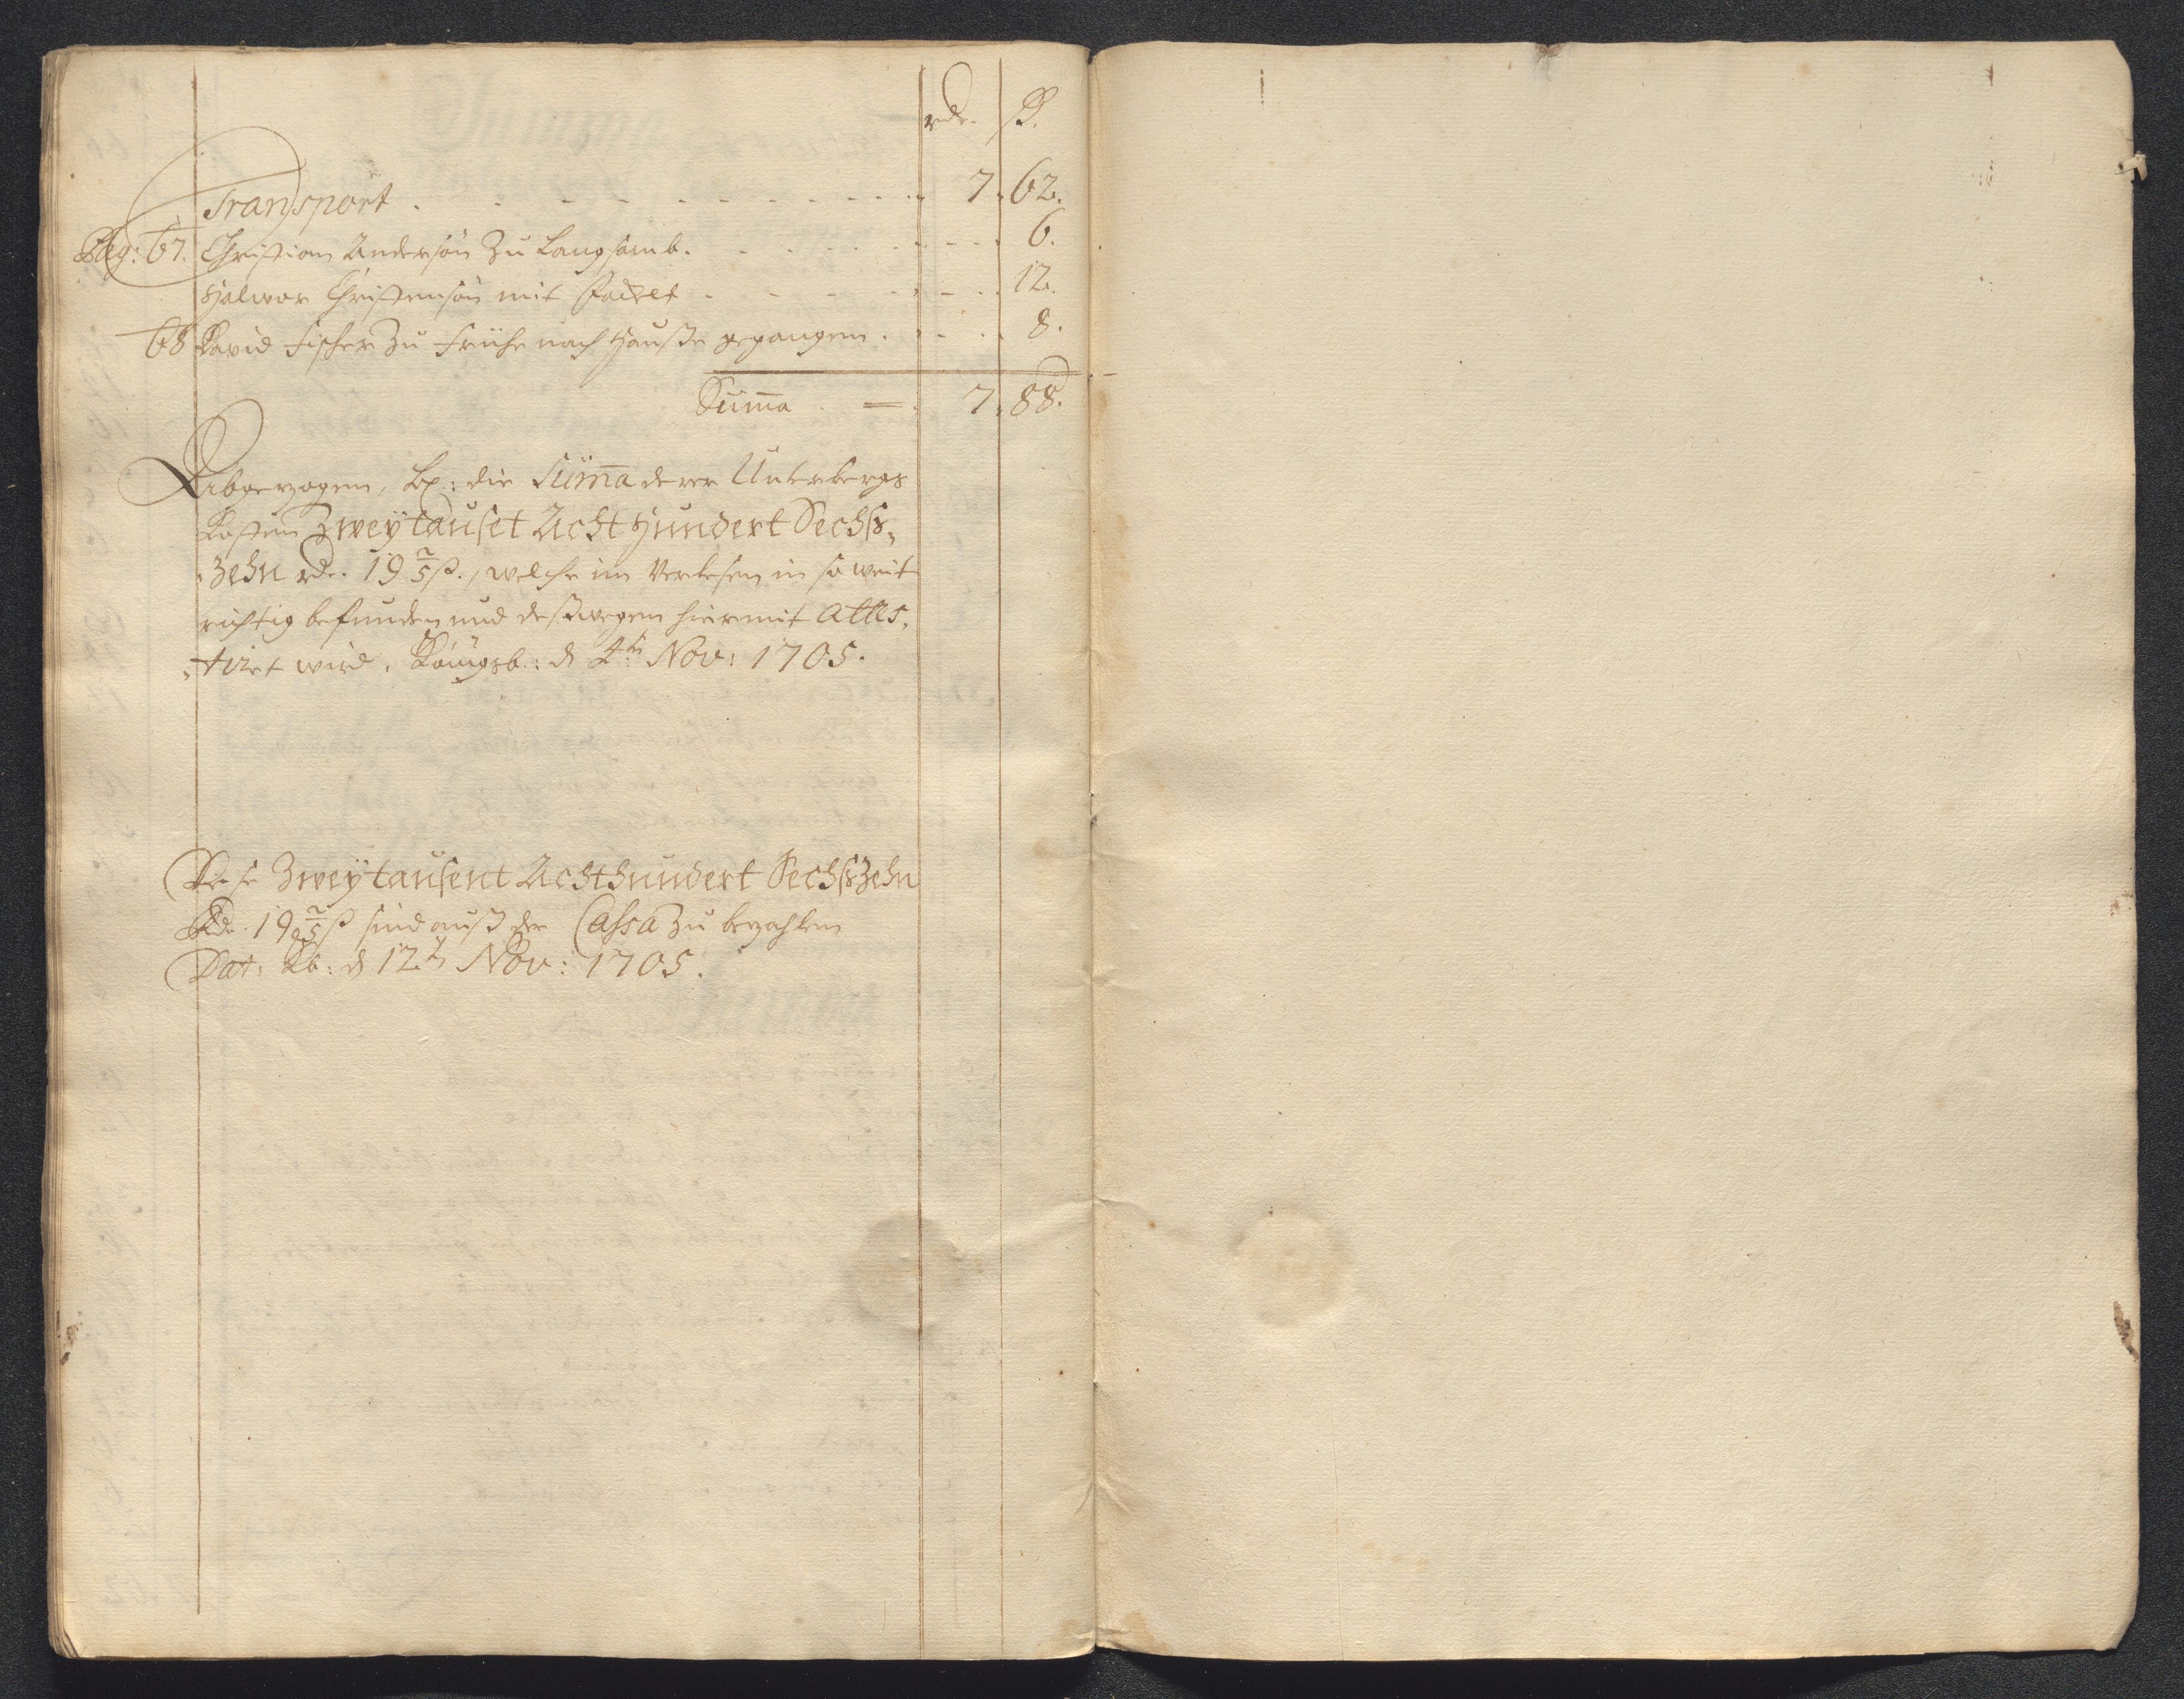 rdr. ß.
Transport . . . . . . . . . 7. 62.
Pag: 67. Christian Andersön Zu Langsamb. . . . . . 6.
Halwor Christensön mit . . . . . 12.
68 David Fischer Zu Frühe nach Hauße gegangen . . . . 8.
Suma . = . 7. 88.
Abgezogen, die Suma derer Unterbergs
Kosten Zweytauset Acht Hundert Sechs-
-zehn rdr. 19 2/5 ß., welche im Verlesen in so weit
richtig befunden und deßwegen hiermit attes-
-tiret wird. Königsb: d 4ten Nov: 1705.
Diese Zweytausent Achthundert Sechszehn
Rdr. 19 2/5 ß sind auß der Cassa zu bezahlen
Dat: Kb: d 12ten Nov: 1705.